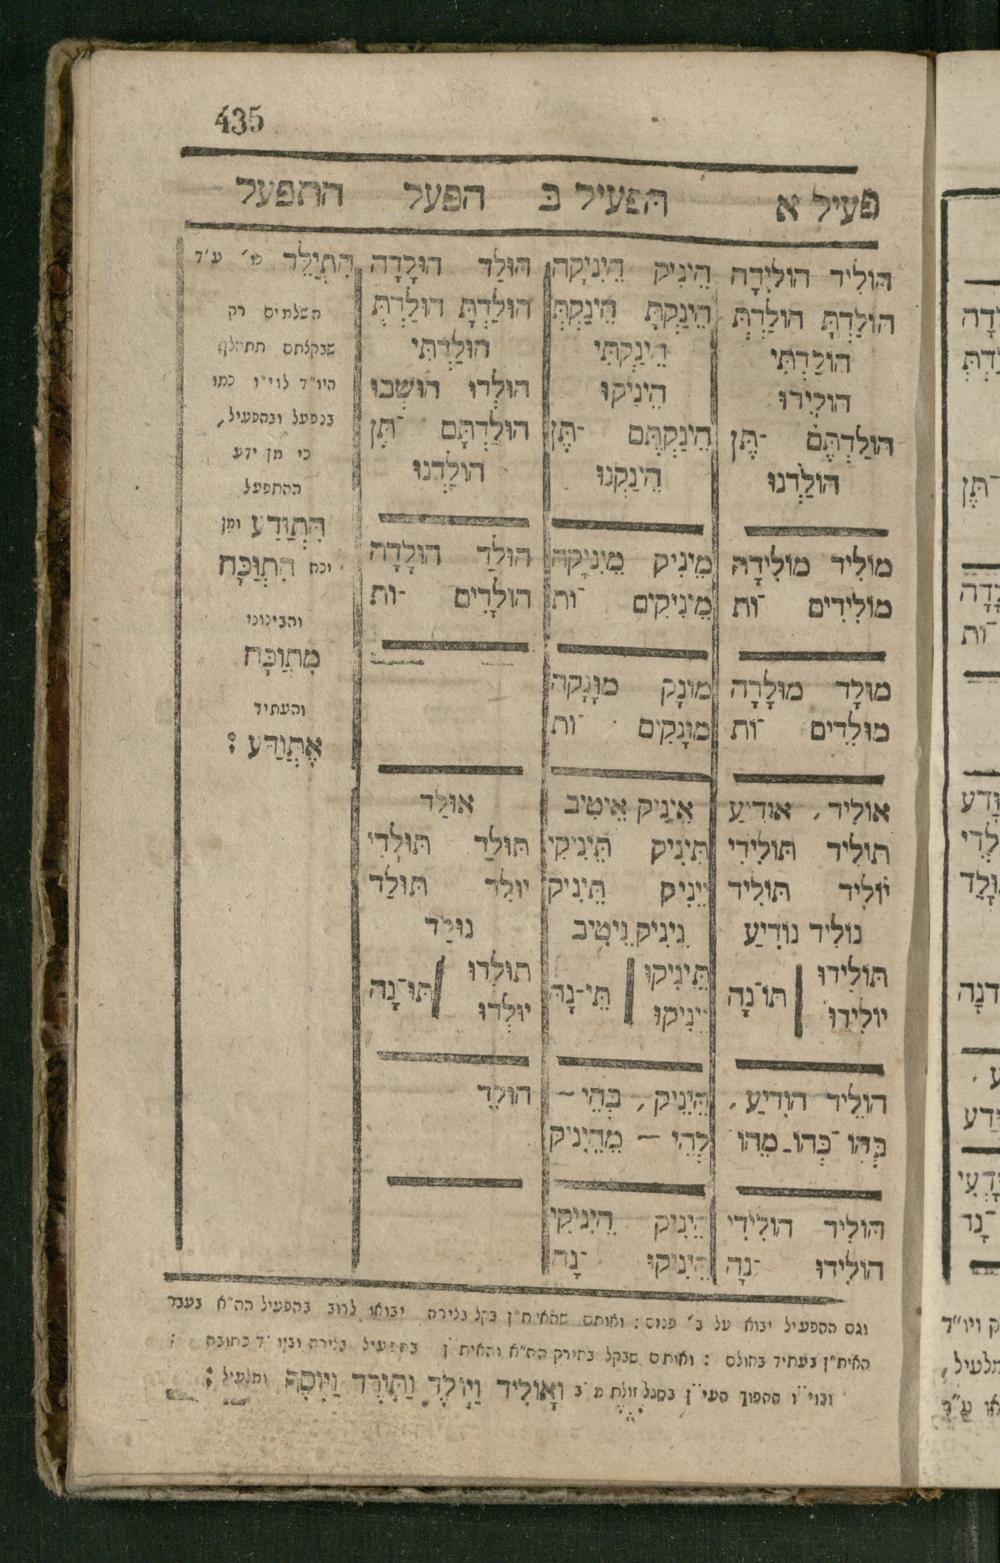 435
פעיל א הפעיל ב הפעל התפעל
הוֹלִיד הוֹלִידָה
הוֹלַדְתָּ הוֹלַדְתְּ
הוֹלַדְתִּי
הוֹלִידוּ
הוֹלַדְתֶּם -תֶּן
הוֹלַדְנוּ
מוֹלִיד מוֹלִידָה
מוֹלִידִים -וֹת
מוּלָד מוּלָדָה
מוּלָדִים -וֹת
אוֹלִיד, אוֹדִיעַ
תוֹלִיד תּוֹלִידִי
יוֹלִיד תּוֹלִיד
נוֹלִיד נוֹדִיעַ
תּוֹלִידוּ
יוֹלִידוּ
תּוֹ־נָה
הוֹלִיד הוֹדִיעַ,
בְּהוֹ־כְּהוֹ־מֵהוֹ
הוֹלִיד הוֹלִידִי
הוֹלִידוּ -נָה
הֵינִיק הֵינִיקָה
הֵינַקְתָּ הֵינַקְתְּ
הֵינַקְתִּי
הֵינִיקוּ
הֵינַקְתֶּם -תֶּן
הֵינַקְנוּ
מֵינִיק מֵינִיקָה
מֵינִיקִים -וֹת
מוּנָק מוּנָקָה
מוּנָקִים -וֹת
אֵינִיק אֵיטִיב
תֵּינִיק תֵּינִיקִי
יֵינִיק תֵּינִיק
נֵינִיק נֵיטִיב
תֵּינִיקוּ
יֵינִיקוּ
תֵּי־נָה
הֵינִיק, בְּהֵי —
לְהֵי — מֵהֵינִיק
הֵינִיק הֵינִיקִי
הֵינִיקוּ -נָה
הוּלַד הוּלָדָה
הוּלַדְתָּ הוּלַדְתְּ
הוּלַדְתִּי
הוּלְדוּ הוּשְׁבוּ
הוּלַדְתֶּם -תֶּן
הוּלַדְנוּ
הוּלַד הוּלָדָה
הוּלָדִים -וֹת
אוּלַד
תּוּלַד תּוּלְדִי
יוּלַד תּוּלַד
נוּלַד
תוּלְדוּ
יוּלְדוּ
תּוּ־נָה
הוּלֵד
הִתְיַלֵּד כו' ע"ד
השלמים רק
שבקלתם תתחלף
היו"ד לוי"ו כמו
בנפעל ובהפעיל,
כי מן ידע
ההתפעל
הִתְוַדַּע ומן
יכח הִתְוַכַּח
והבינוני
מִתְוַכֵּחַ
והעתיד
אֶתְוַדַּע :
וגם ההפעיל יבוא על ב' פנים : ואותם שהאית"ן בקל בלירה יבואו לרוב בהפעיל הה"א בעבר
האית"ן בעתיד בחולם : ואותם שבקל בחירק הה"א והאית"ן בהפעיל בלירה וביו"ד כתובה :
ובוי"ו ההפוך העי"ן בסגל זולת מ"ב וָאוֹלִיד וַיּוֹלֶד וַתּוֹרֶד וַיּוֹסֶף ומלעיל :